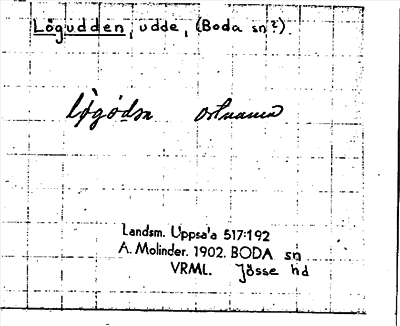 Lögudden, udde, (Boda sn?).
ortnamn
Landsm. Uppsala 517:192
A. Molinder. 1902. BODA sn
VRML. Jösse hd